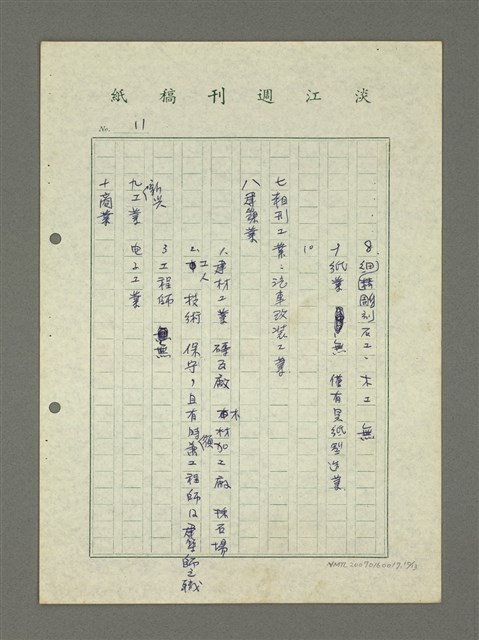 淡江週刊稿紙
No. 11
8. 細(精)雕刻石工、木工 無
9 紙業 無 僅有呈紙型造業
10
七 輕刑工業：汽車改装工業
八 建築業
1. 建材工業 磚瓦廠 木材加工廠 採石場
2. 工人 技術 保守，且有時須兼工程師及建築師之職
3 工程師 無
九 新興工業 电子工業
十 商業
NMTL20070160017.15/53